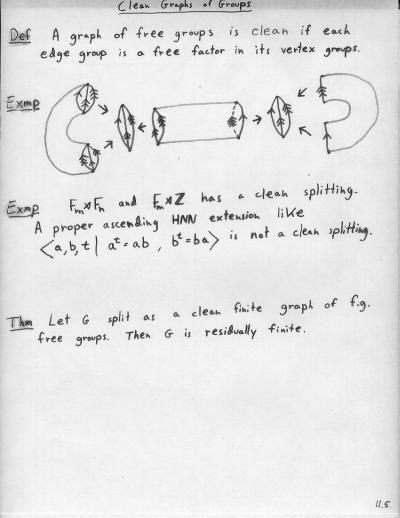 Clean Graphs of Groups
Def A graph of free groups is clean if each
edge group is a free factor in its vertex groups.
Exmp
Exmp Fm⋊Fn and Fm⋊Z has a clean splitting.
A proper ascending HNN extension like
⟨a,b,t | aᵗ=ab, bᵗ=ba⟩ is not a clean splitting.
Thm Let G split as a clean finite graph of f.g.
free groups. Then G is residually finite.
11.5